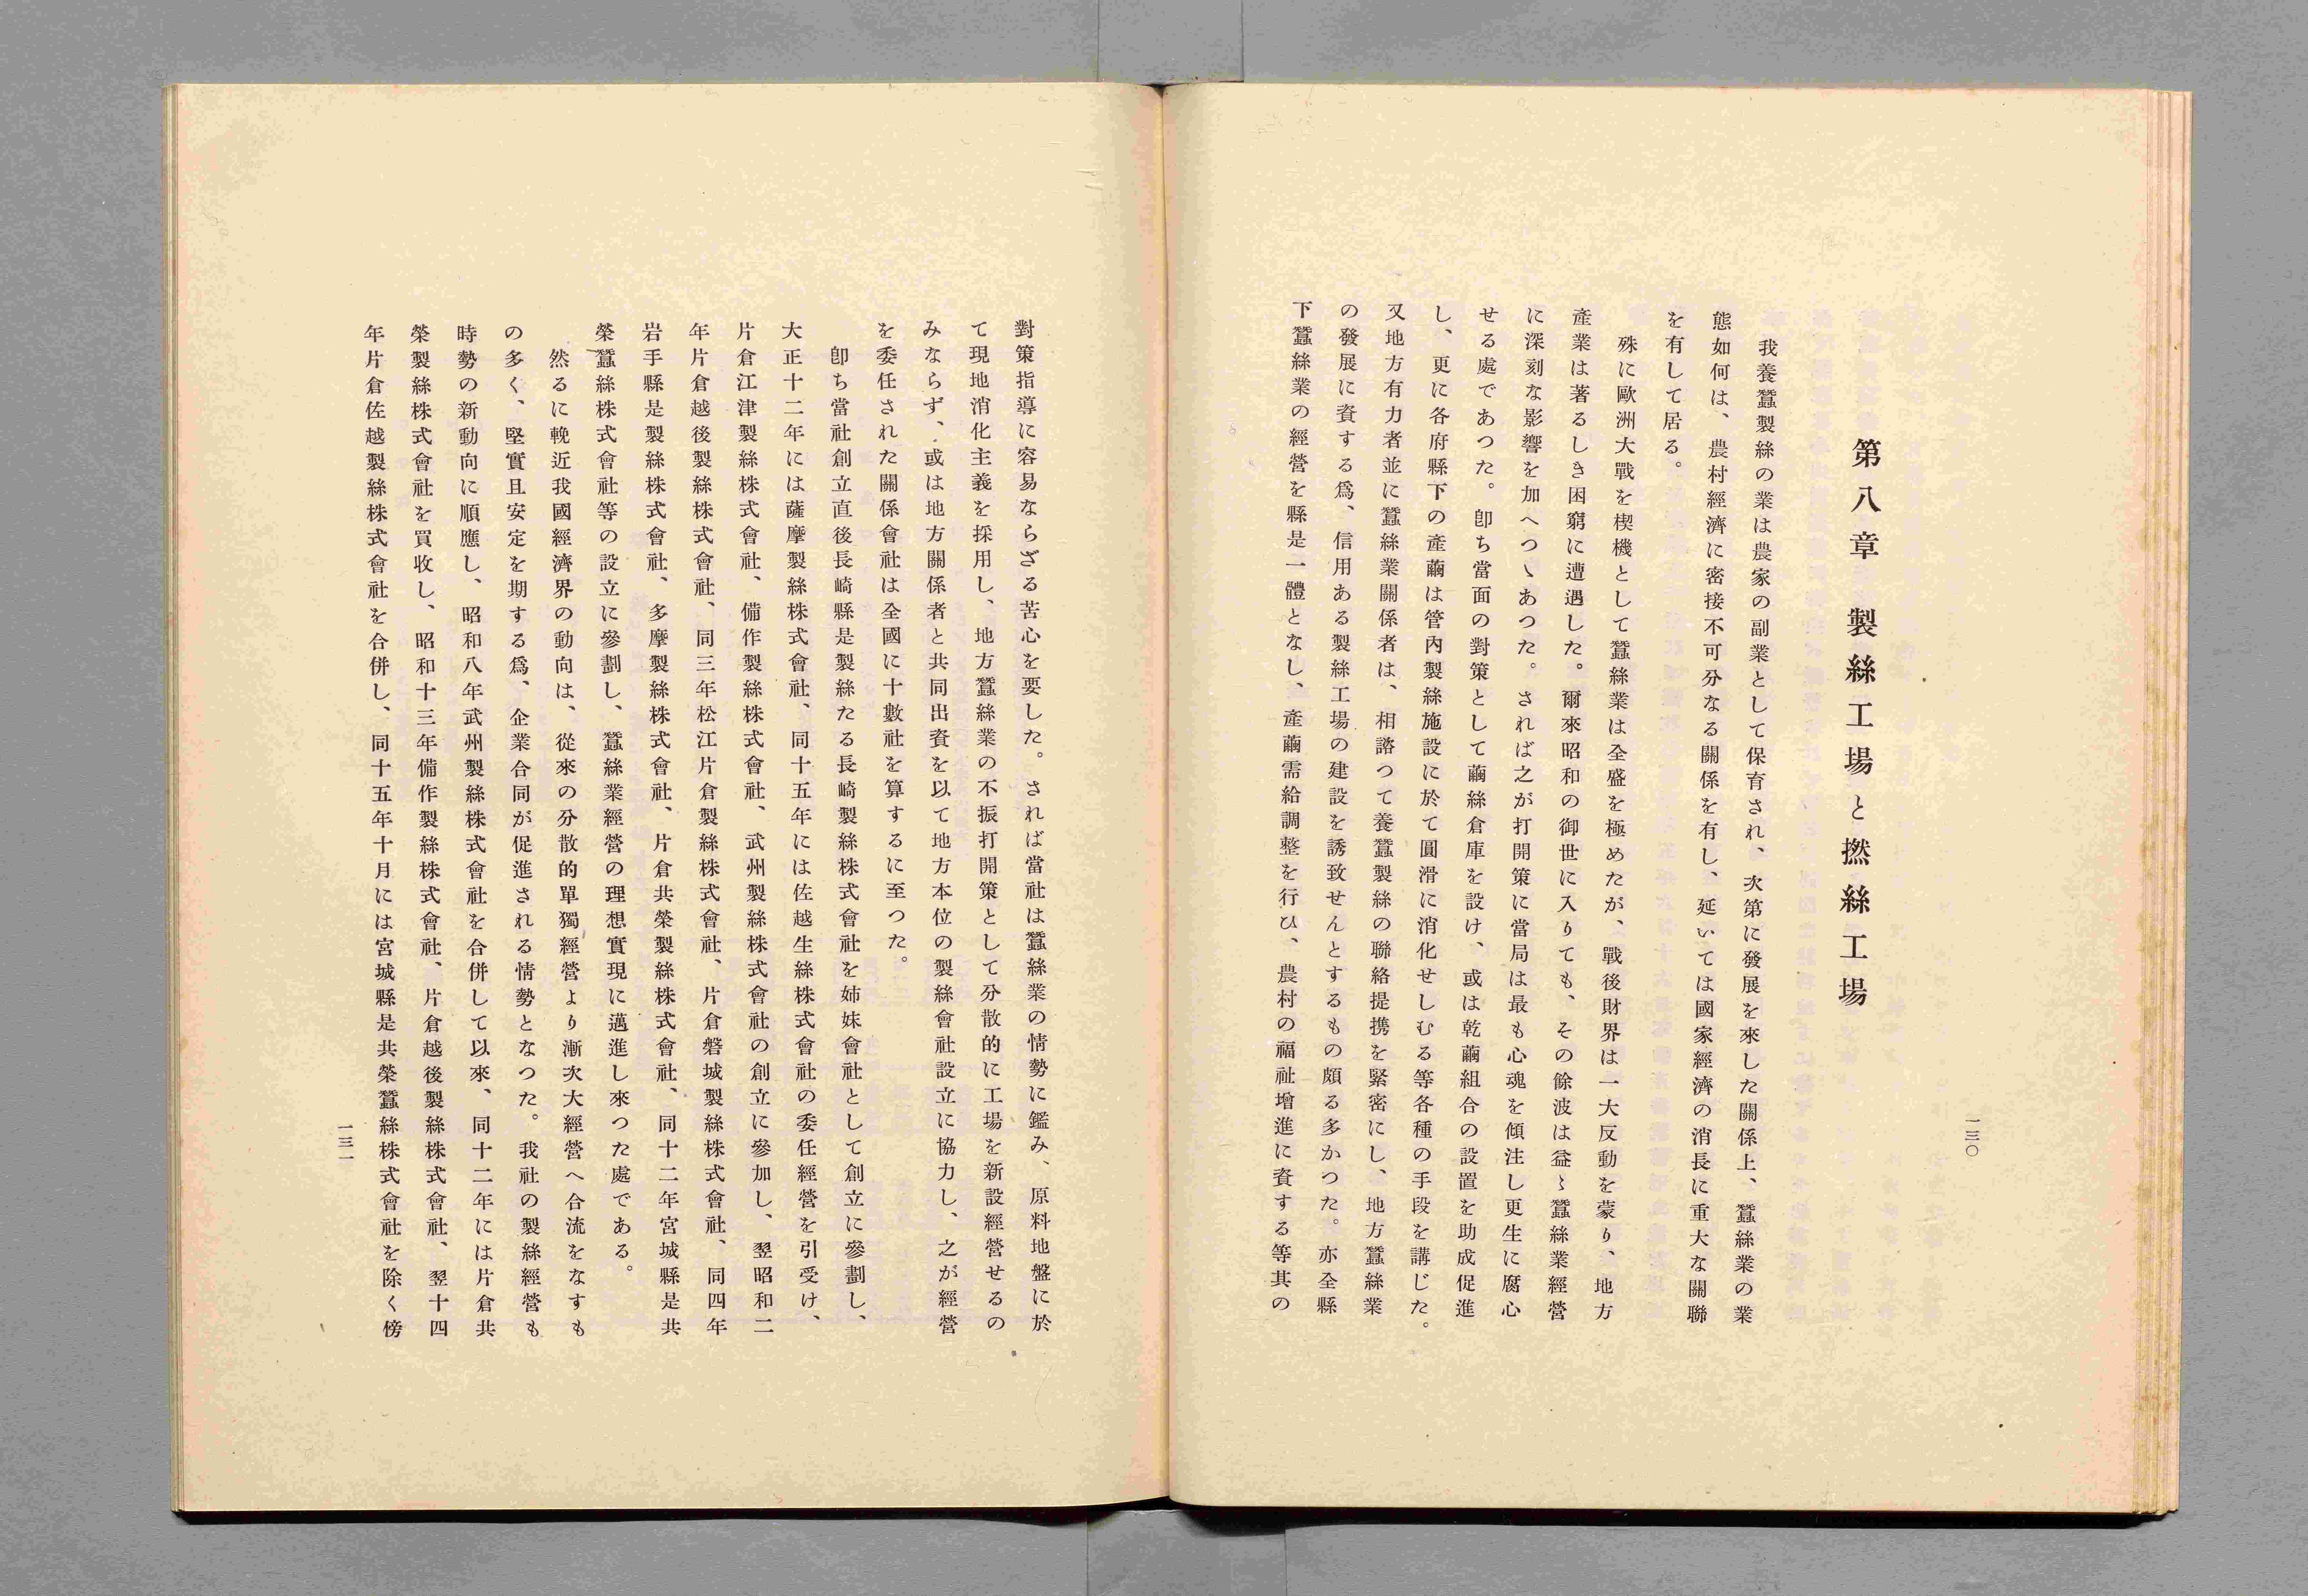 第八章　製絲工場と撚絲工場
我養蠶製絲の業は農家の副業として保育され、次第に發展を來した關係上、蠶絲業の業
態如何は、農村經濟に密接不可分なる關係を有し、延いては國家經濟の消長に重大な關聯
を有して居る。
殊に歐洲大戰を楔機として蠶絲業は全盛を極めたが、戰後財界は一大反動を蒙り、地方
產業は著るしき困窮に遭遇した。爾來昭和の御世に入りても、その餘波は益〻蠶絲業經營
に深刻な影響を加へつゝあつた。されば之が打開策に當局は最も心魂を傾注し更生に腐心
せる處であつた。卽ち當面の對策として繭絲倉庫を設け、或は乾繭組合の設置を助成促進
し、更に各府縣下の產繭は管內製絲施設に於て圓滑に消化せしむる等各種の手段を講じた。
又地方有力者並に蠶絲業關係者は、相諮つて養蠶製絲の聯絡提携を緊密にし、地方蠶絲業
の發展に資する爲、信用ある製絲工場の建設を誘致せんとするもの頗る多かつた。亦全縣
下蠶絲業の經營を縣是一體となし、產繭需給調整を行ひ、農村の福祉增進に資する等其の
一三〇
對策指導に容易ならざる苦心を要した。されば當社は蠶絲業の情勢に鑑み、原料地盤に於
て現地消化主義を採用し、地方蠶絲業の不振打開策として分散的に工場を新設經營せるの
みならず、或は地方關係者と共同出資を以て地方本位の製絲會社設立に協力し、之が經營
を委任された關係會社は全國に十數社を算するに至つた。
卽ち當社創立直後長崎縣是製絲たる長崎製絲株式會社を姉妹會社として創立に參劃し、
大正十二年には薩摩製絲株式會社、同十五年には佐越生絲株式會社の委任經營を引受け、
片倉江津製絲株式會社、備作製絲株式會社、武州製絲株式會社の創立に參加し、翌昭和二
年片倉越後製絲株式會社、同三年松江片倉製絲株式會社、片倉磐城製絲株式會社、同四年
岩手縣是製絲株式會社、多摩製絲株式會社、片倉共榮製絲株式會社、同十二年宮城縣是共
榮蠶絲株式會社等の設立に參劃し、蠶絲業經營の理想實現に邁進し來つた處である。
然るに輓近我國經濟界の動向は、從來の分散的單獨經營より漸次大經營へ合流をなすも
の多く、堅實且安定を期する爲、企業合同が促進される情勢となつた。我社の製絲經營も
時勢の新動向に順應し、昭和八年武州製絲株式會社を合併して以來、同十二年には片倉共
榮製絲株式會社を買收し、昭和十三年備作製絲株式會社、片倉越後製絲株式會社、翌十四
年片倉佐越製絲株式會社を合併し、同十五年十月には宮城縣是共榮蠶絲株式會社を除く傍
一三一